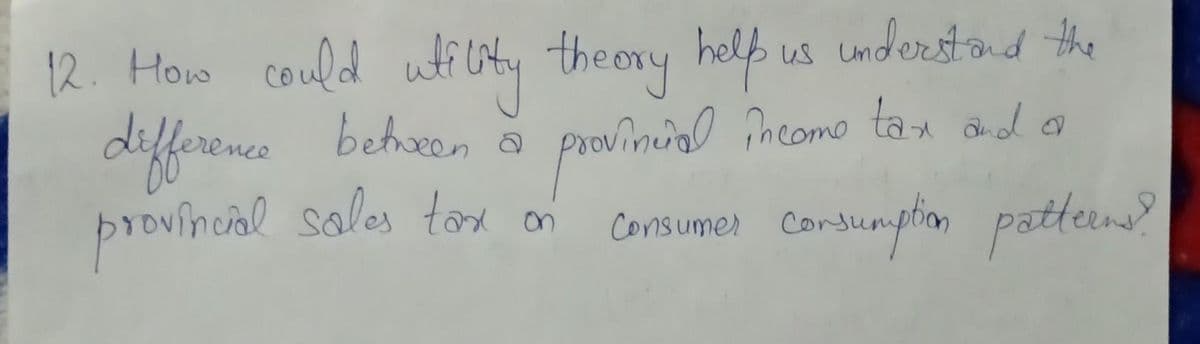 12. How could utility theory help us understand the
difference between a provincial income tax and a
provincial sales tax on consumer consumption patterns?